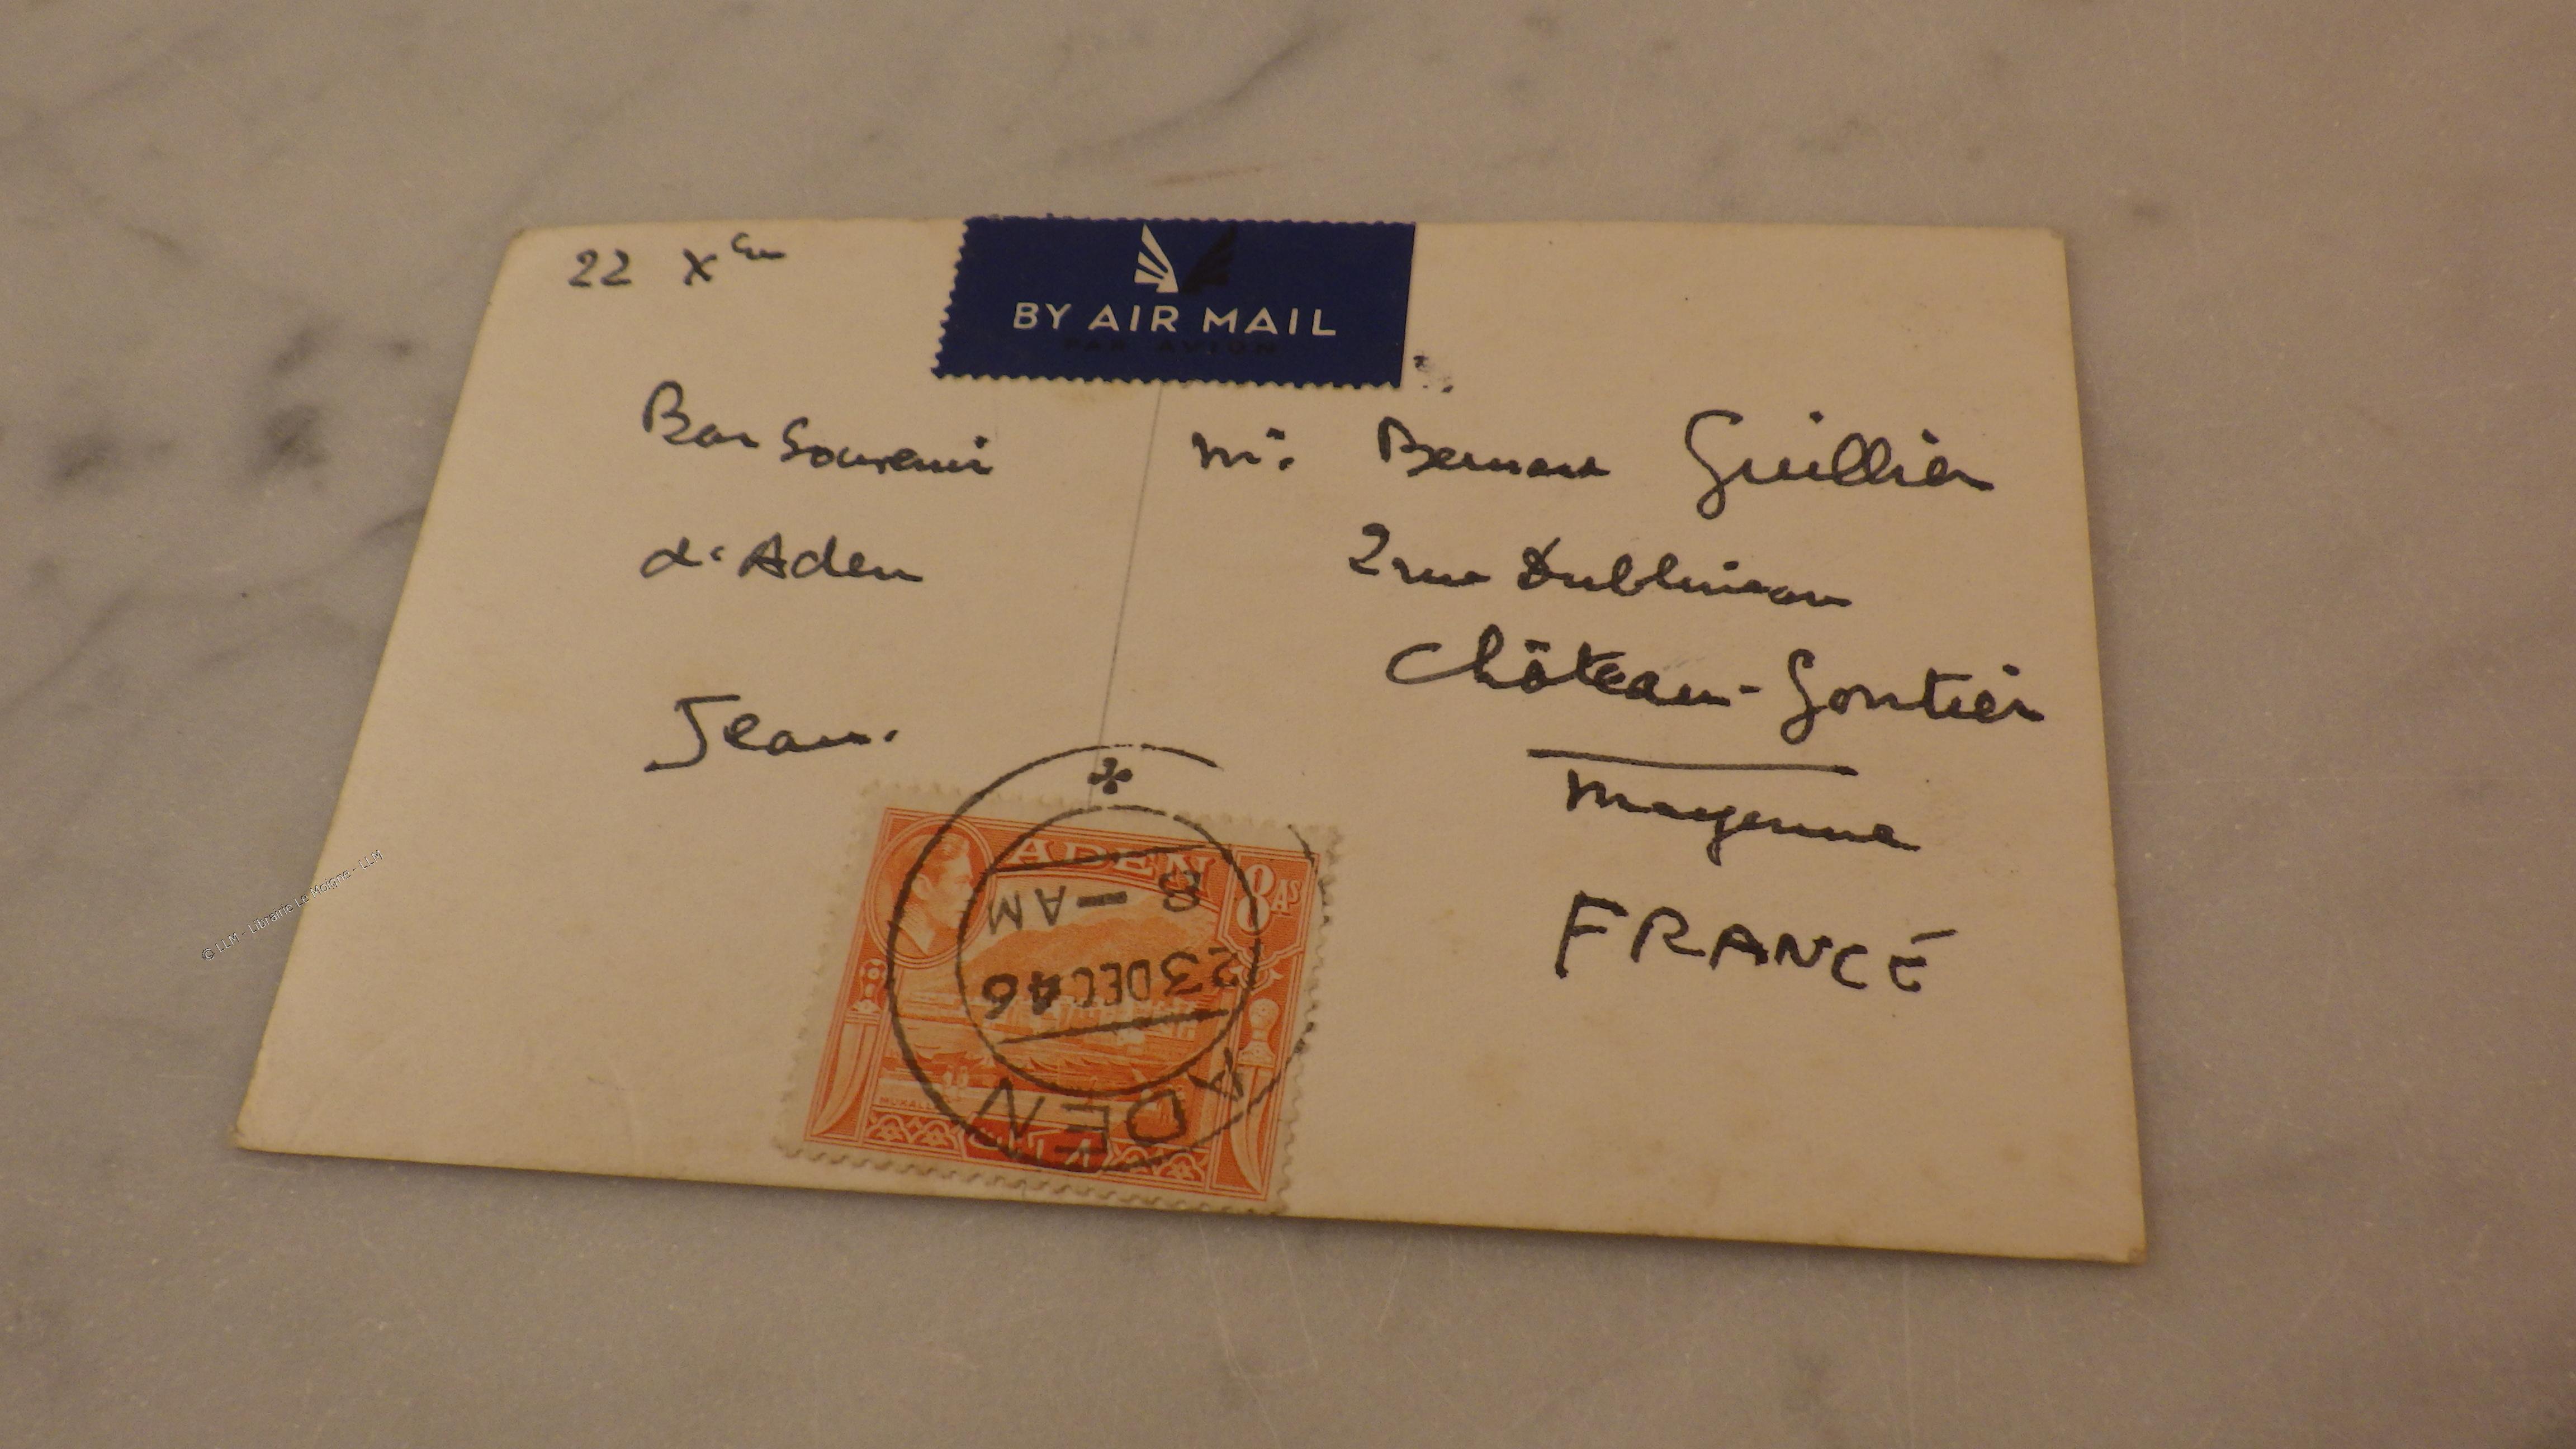 22 Xbre
BY AIR MAIL
PAR AVION
Bon Souvenir
d'Aden
Jean.
Mr. Bernard Guillier
2 rue Dublineau
Château-Gontier
Mayenne
FRANCE
ADEN
8 AS
MUKALLA
ADEN
8-AM
23 DEC 46
© LLM - Librairie Le Moigne - LLM